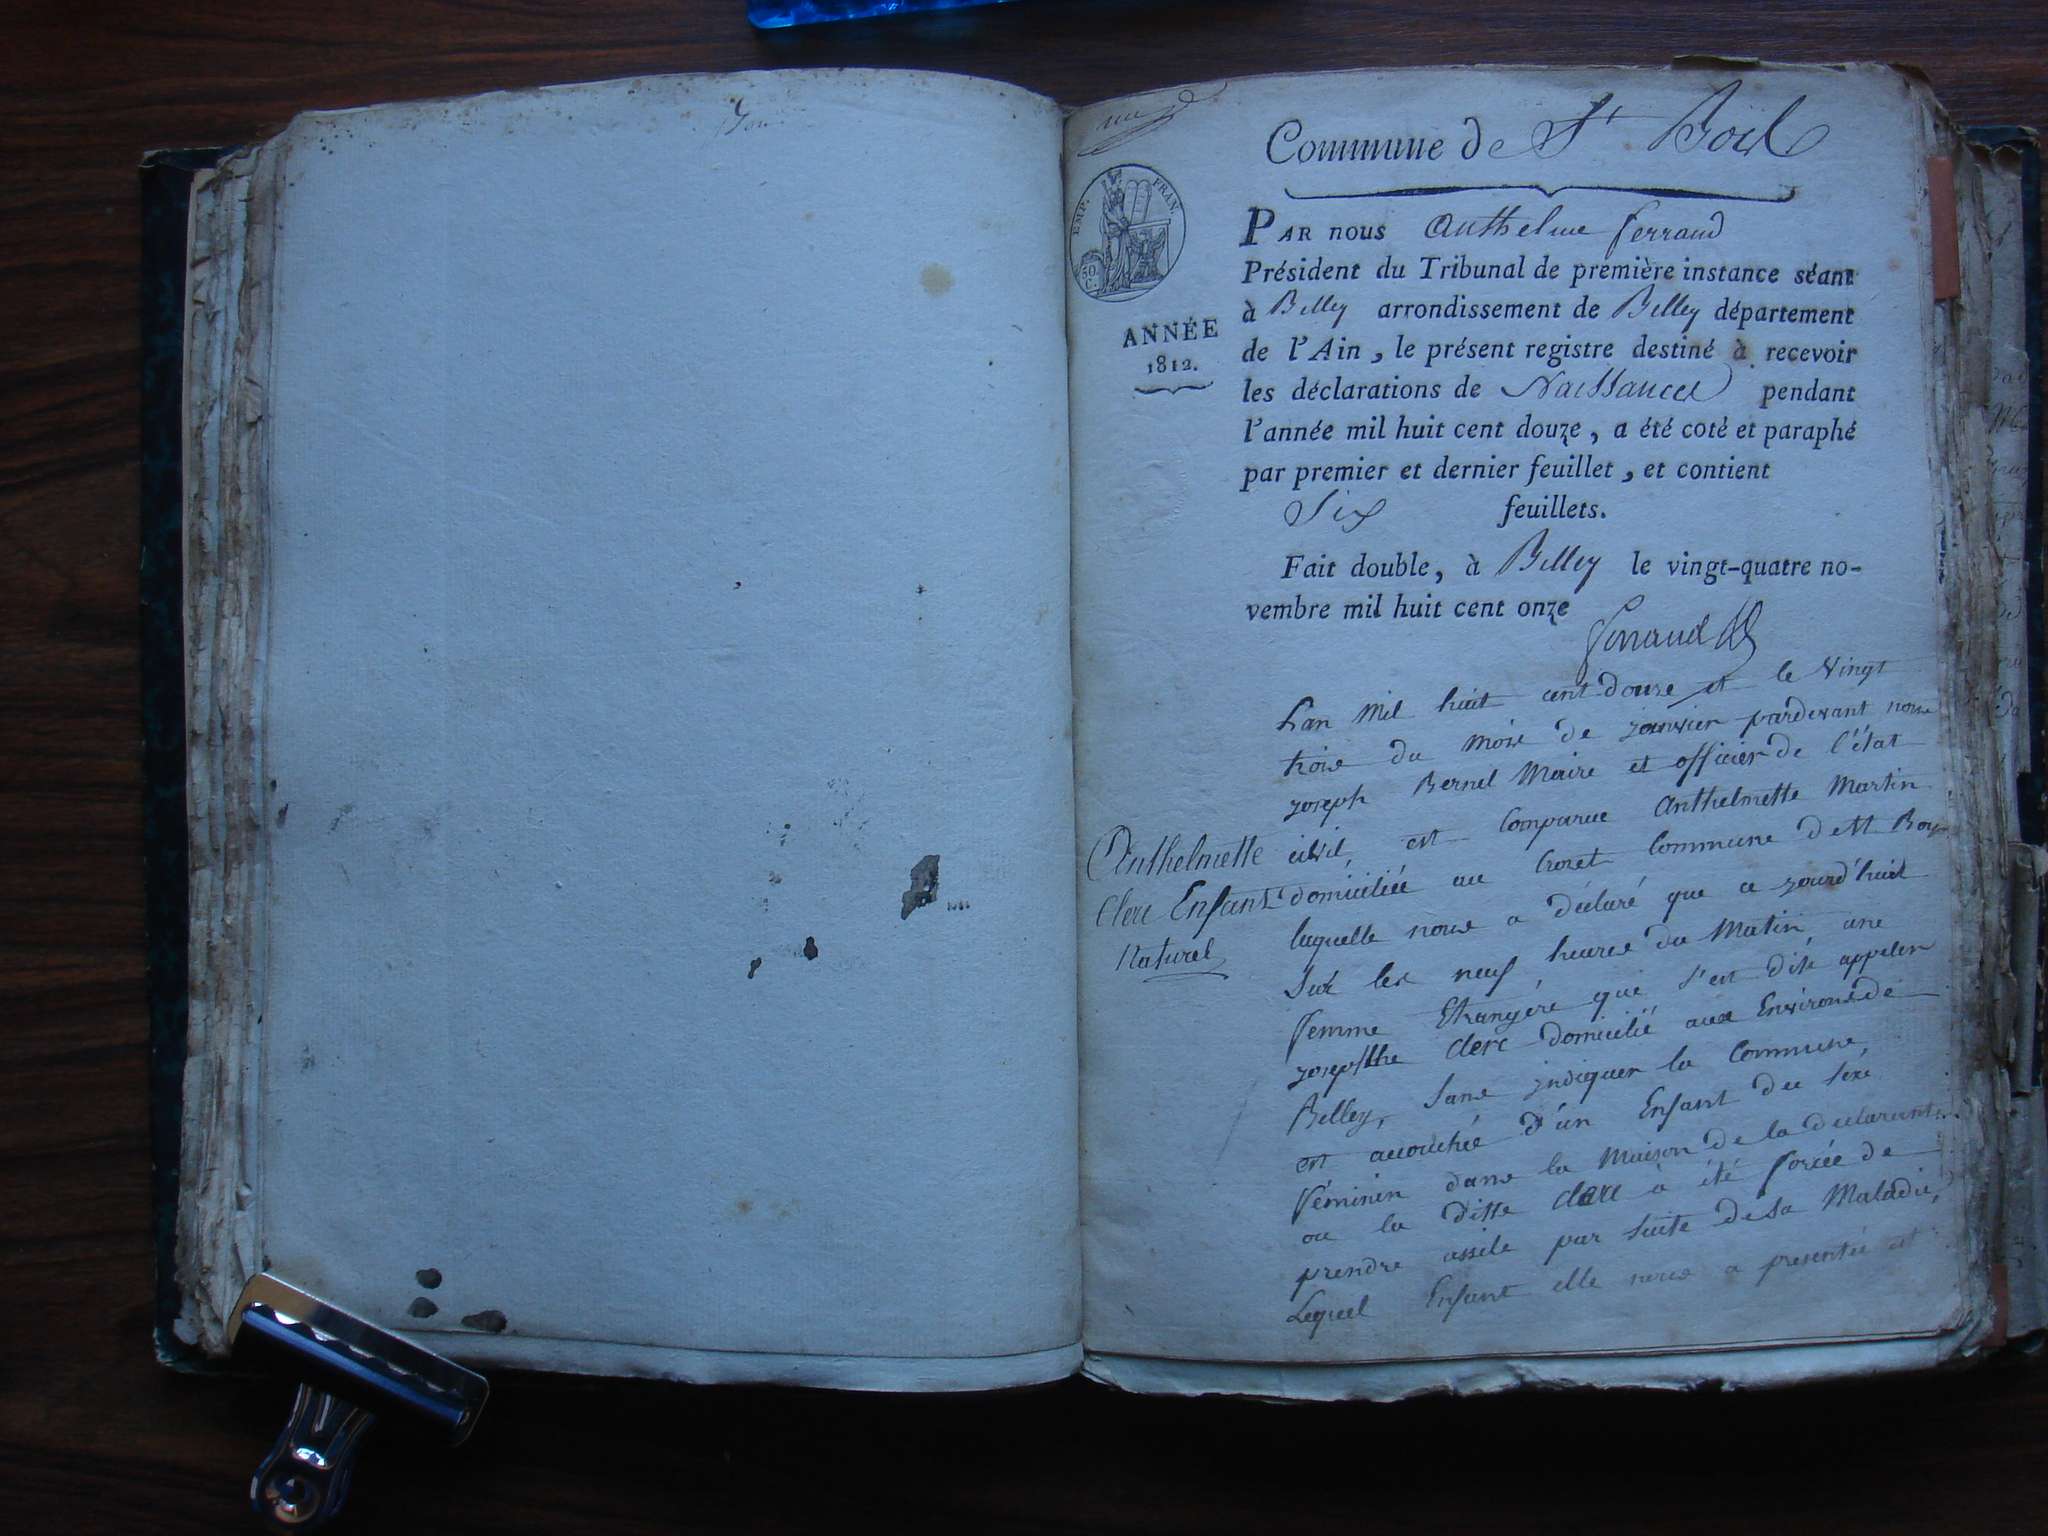 Commune de St Boil
EMP. FRAN.
50.
C.
PAR nous Anthelme ferrand
Président du Tribunal de première instance séant
à Belley arrondissement de Belley département
ANNÉE
1812.
de l'Ain, le présent registre destiné à recevoir
les déclarations de Naissances pendant
l'année mil huit cent douze, a été coté et paraphé
par premier et dernier feuillet, et contient
Six feuillets.
Fait double, à Belley le vingt-quatre no-
vembre mil huit cent onze
ferrand
Lan Mil huit cent douze et le Vingt
trois du mois de janvier pardevant nous
joseph Bernel Maire et officier de l'état
civil, est Comparue Anthelmette Martin
domiciliée au Crozet Commune de St Boy
laquelle nous a déclaré que ce jourd'huit
Sur les neuf heures du Matin, une
femme Etrangére qui s'est dite appeler
josephthe Clerc domicilié aux Environs de
Belley, Sans jndiquer la Commune,
est accouchée d'un Enfant du sexe
féminin dans la Maison de la declarante
ou la ditte Clerc à été forcée de
prendre assile par Suite de Sa Maladie,
Lequel Enfant elle nous a presentée et
Anthelmette
Clerc Enfant
Naturel